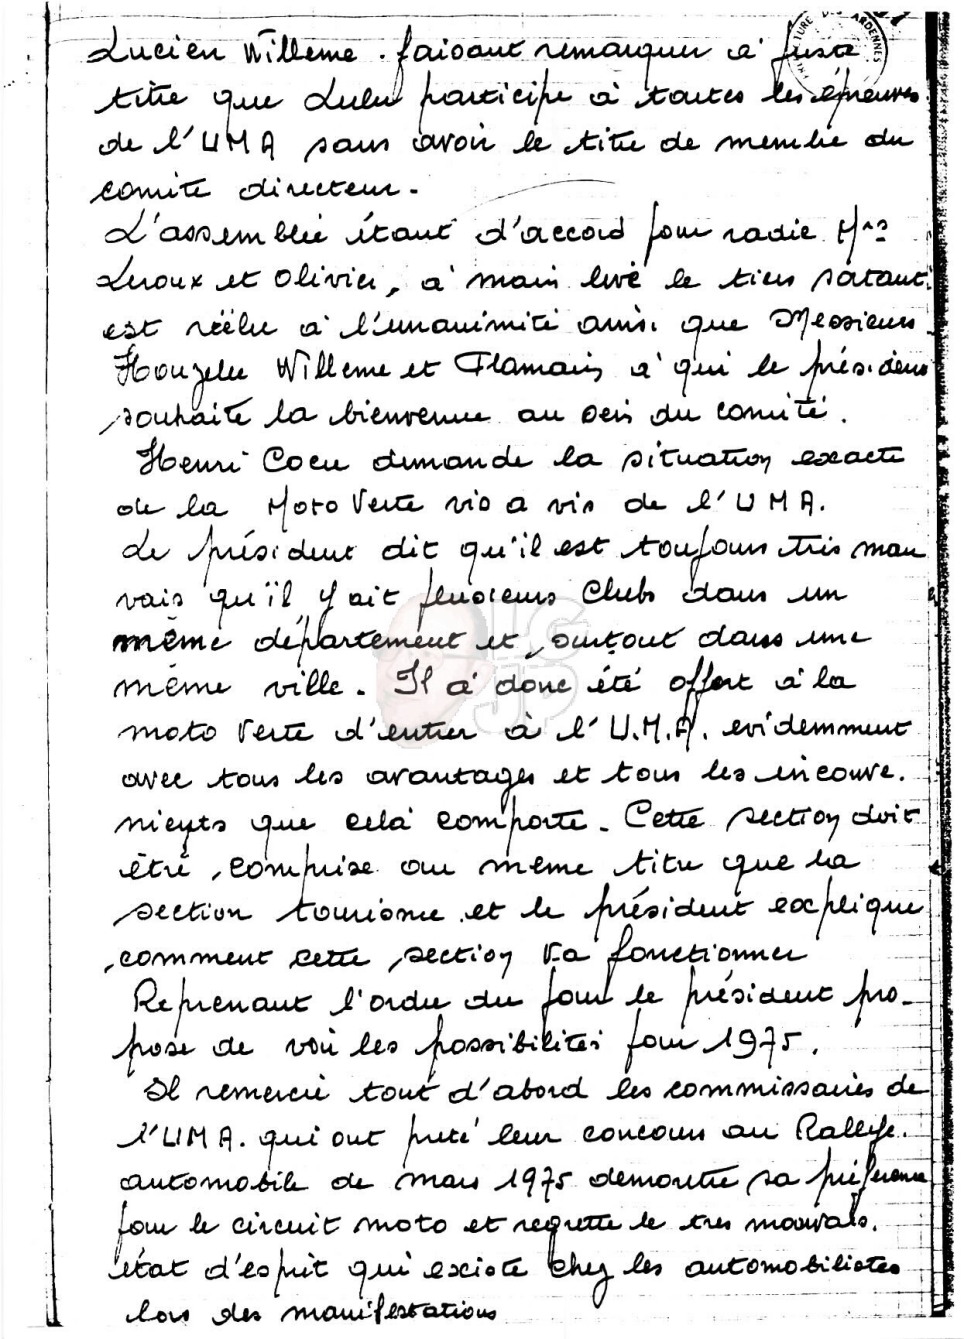 Lucien Willeme. faisant remarquer à juste
titre que Lulu participe à toutes les épreuves
de l'UMA sans avoir le titre de membre du
comité directeur.
L'assemblée étant d'accord pour radié Mrs
Leroux et Olivier, à main levé le tiers sortant
est réélu à l'unanimité ainsi que Messieurs
Houzelle Willeme et Flamain à qui le président
souhaite la bienvenue au sein du comité.
Henri Coeu demande la situation exacte
de la Moto Verte vis a vis de l'UMA.
Le président dit qu'il est toujours très mau
vais qu'il y ait plusieurs Clubs dans un
même département et, surtout dans une
même ville. Il à donc été offert à la
moto Verte d'entrer à l'U.M.A. evidemment
avec tous les avantages et tous les inconve.
nients que celà comporte. Cette section doit
être, comprise au meme titre que la
section tourisme et le président explique
comment cette section va fonctionner
Reprenant l'ordre du jour le président pro-
pose de voir les possibilités pour 1975.
Il remercie tout d'abord les commissaires de
l'UMA. qui ont preté leur concours au Rallye.
automobile de mars 1975 demontre sa préférence
pour le circuit moto et regrette le tres mauvais.
état d'esprit qui existe chez les automobilistes
lors des manifestations
ARDENNES
HCJP